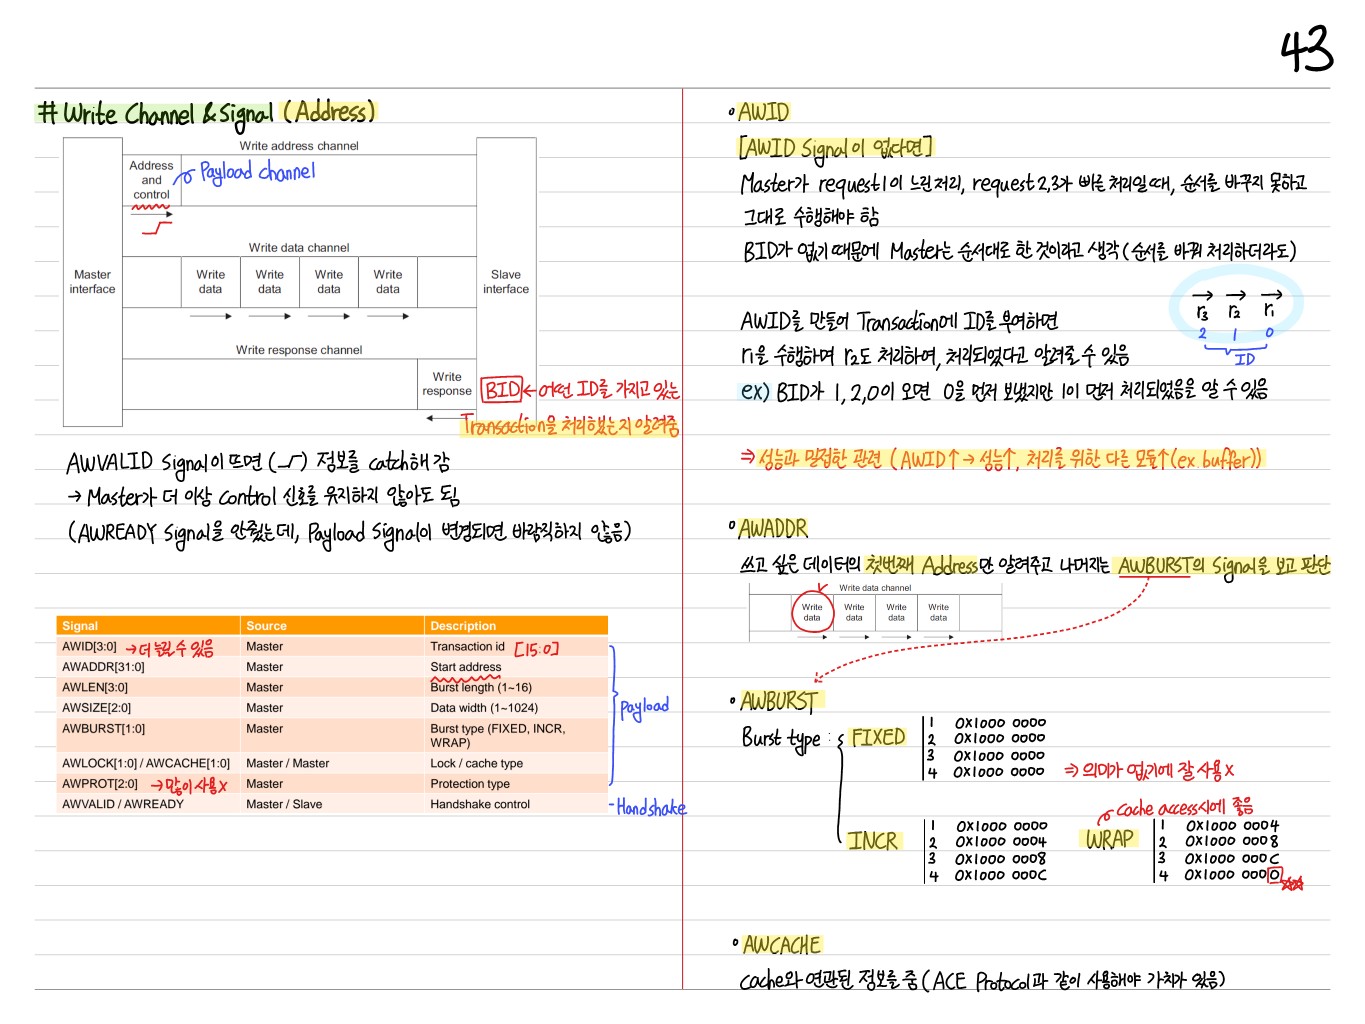 43
# Write Channel & Signal (Address)
Write address channel
Address
and
control
Payload channel
Write data channel
Master
interface
Write
data
Write
data
Write
data
Write
data
Slave
interface
Write response channel
Write
response
BID ← 어떤 ID를 가지고 있는
Transaction을 처리했는지 알려줌
AWVALID Signal이 뜨면 ( ) 정보를 catch해 감
→ Master가 더 이상 Control 신호를 유지하지 않아도 됨
(AWREADY Signal을 안줬는데, Payload Signal이 변경되면 바람직하지 않음)
Signal Source Description
AWID[3:0] → 더 늘릴 수 있음 Master Transaction id [15:0]
AWADDR[31:0] Master Start address
AWLEN[3:0] Master Burst length (1~16)
AWSIZE[2:0] Master Data width (1~1024)
AWBURST[1:0] Master Burst type (FIXED, INCR,
WRAP)
AWLOCK[1:0] / AWCACHE[1:0] Master / Master Lock / cache type
AWPROT[2:0] → 많이 사용 X Master Protection type
AWVALID / AWREADY Master / Slave Handshake control
Payload
Handshake
• AWID
[AWID Signal이 없다면]
Master가 request1이 느린 처리, request2,3가 빠른 처리일 때, 순서를 바꾸지 못하고
그대로 수행해야 함
BID가 없기 때문에 Master는 순서대로 한 것이라고 생각 (순서를 바꿔 처리하더라도)
r3 r2 r1
2 1 0
ID
AWID를 만들어 Transaction에 ID를 부여하면
r1을 수행하며 r2도 처리하여, 처리되었다고 알려줄 수 있음
ex) BID가 1, 2, 0이 오면 0을 먼저 보냈지만 1이 먼저 처리되었음을 알 수 있음
⇒ 성능과 밀접한 관련 (AWID↑ → 성능↑, 처리를 위한 다른 모듈↑ (ex. buffer))
• AWADDR
쓰고 싶은 데이터의 첫번째 Address만 알려주고 나머지는 AWBURST의 Signal을 보고 판단
Write data channel
Write
data
Write
data
Write
data
Write
data
• AWBURST
Burst type :
FIXED
1 0X1000 0000
2 0X1000 0000
3 0X1000 0000
4 0X1000 0000
⇒ 의미가 없기에 잘 사용 X
INCR
1 0X1000 0000
2 0X1000 0004
3 0X1000 0008
4 0X1000 000C
cache access시에 좋음
WRAP
1 0X1000 0004
2 0X1000 0008
3 0X1000 000C
4 0X1000 0000 ☆☆
• AWCACHE
cache와 연관된 정보를 줌 (ACE Protocol과 같이 사용해야 가치가 있음)